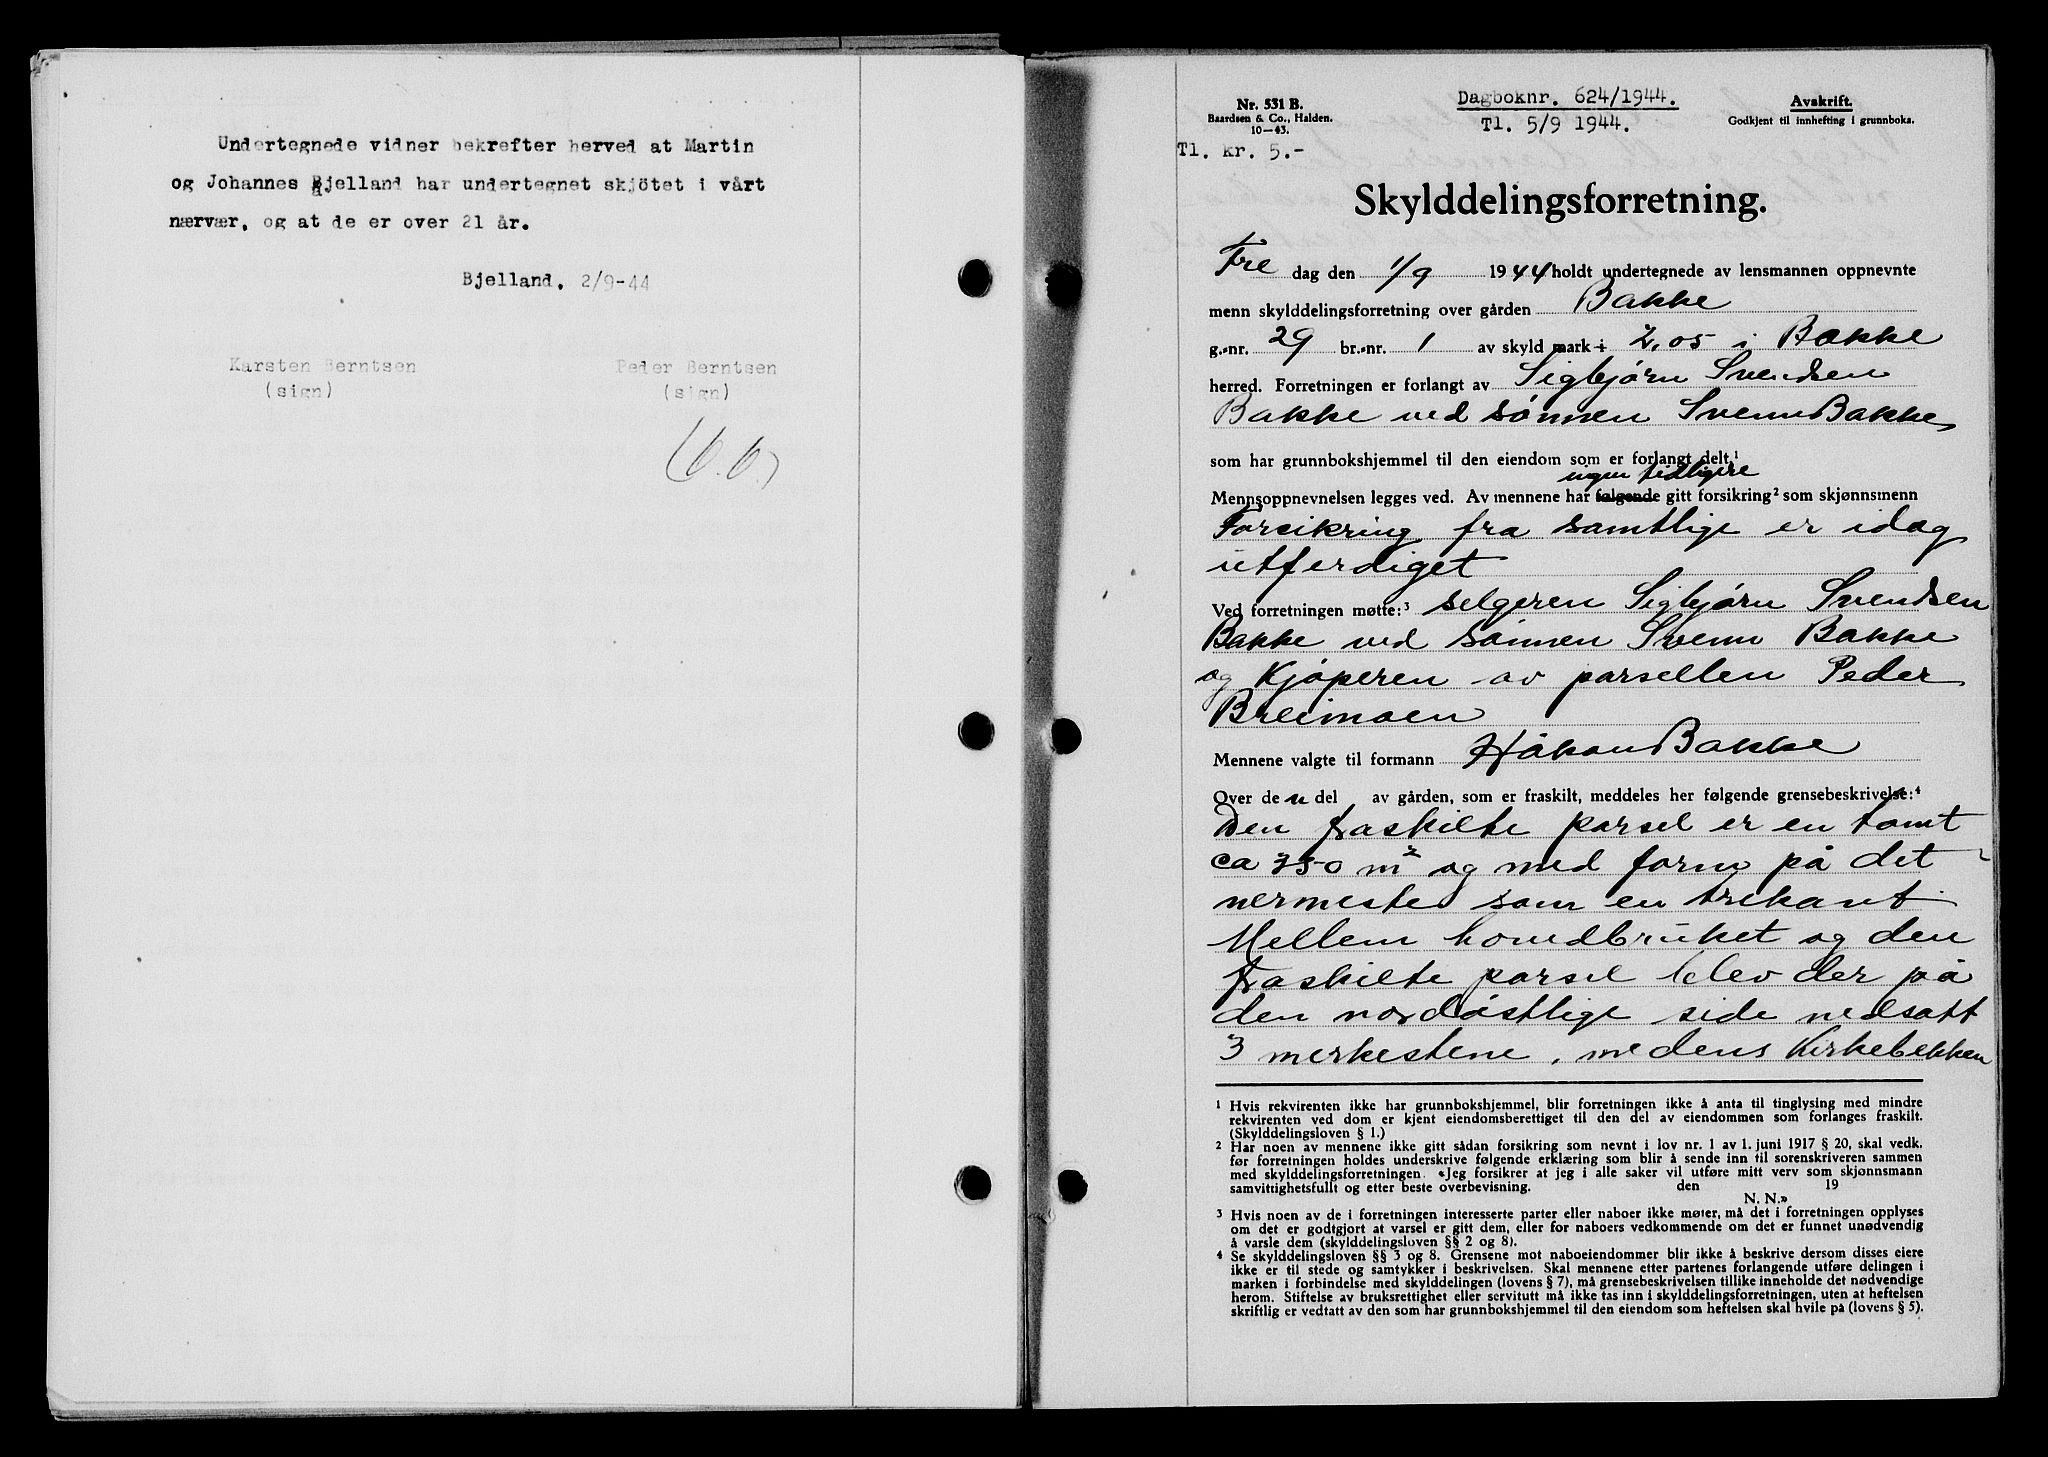 Undertegnede vidner bekrefter herved at Martin
og Johannes Bjelland har undertegnet skjötet i vårt
nærvær, og at de er over 21 år.
Bjelland, 2/9-44
Karsten Berntsen
(sign)
Peder Berntsen
(sign)
Nr. 531 B.
Baardsen & Co., Halden.
10—43.
Dagboknr. 624/1944.
Tl. 5/9 1944.
Avskrift.
Godkjent til innhefting i grunnboka.
Tl. kr. 5.-
Skylddelingsforretning.
Fre dag den 1/9 1944 holdt undertegnede av lensmannen oppnevnte
menn skylddelingsforretning over gården Bakke
g.-nr. 29 br.-nr. 1 av skyld mark 2,05 i Bakke
herred. Forretningen er forlangt av Sigbjørn Svendsen
Bakke ved sønnen Svenn Bakke,
som har grunnbokshjemmel til den eiendom som er forlangt delt.¹
ingen tidligere
Mennsoppnevnelsen legges ved. Av mennene har følgende gitt forsikring² som skjønnsmenn
Forsikring fra samtlige er idag
utferdiget
Ved forretningen møtte:³ selgeren Sigbjørn Svendsen
Bakke ved sønnen Svenn Bakke
og Kjøperen av parsellen Peder
Breimoen
Mennene valgte til formann Håkon Bakke
Over den del av gården, som er fraskilt, meddeles her følgende grensebeskrivelse:⁴
Den fraskilte parsel er en tomt
ca 750 m² og med form på det
nermeste som en trekant
Mellem hovedbruket og den
fraskilte parsel blev der på
den nordøstlige side nedsatt
3 merkestene, medens Kirkebekken
¹ Hvis rekvirenten ikke har grunnbokshjemmel, blir forretningen ikke å anta til tinglysing med mindre
rekvirenten ved dom er kjent eiendomsberettiget til den del av eiendommen som forlanges fraskilt.
(Skylddelingsloven § 1.)
² Har noen av mennene ikke gitt sådan forsikring som nevnt i lov nr. 1 av 1. juni 1917 § 20, skal vedk.
før forretningen holdes underskrive følgende erklæring som blir å sende inn til sorenskriveren sammen
med skylddelingsforretningen. «Jeg forsikrer at jeg i alle saker vil utføre mitt verv som skjønnsmann
samvittighetsfullt og etter beste overbevisning. den 19
N. N.»
³ Hvis noen av de i forretningen interesserte parter eller naboer ikke møter, må det i forretningen opplyses
om det er godtgjort at varsel er gitt dem, eller for naboers vedkommende om det er funnet unødvendig
å varsle dem (skylddelingsloven §§ 2 og 8).
⁴ Se skylddelingsloven §§ 3 og 8. Grensene mot naboeiendommer blir ikke å beskrive dersom disses eiere
ikke er til stede og samtykker i beskrivelsen. Skal mennene etter partenes forlangende utføre delingen i
marken i forbindelse med skylddelingen (lovens § 7), må grensebeskrivelsen tillike inneholde det nødvendige
herom. Stiftelse av bruksrettighet eller servitutt må ikke tas inn i skylddelingsforretningen, uten at heftelsen
skriftlig er vedtatt av den som har grunnbokshjemmel til den eiendom som heftelsen skal hvile på (lovens § 5).